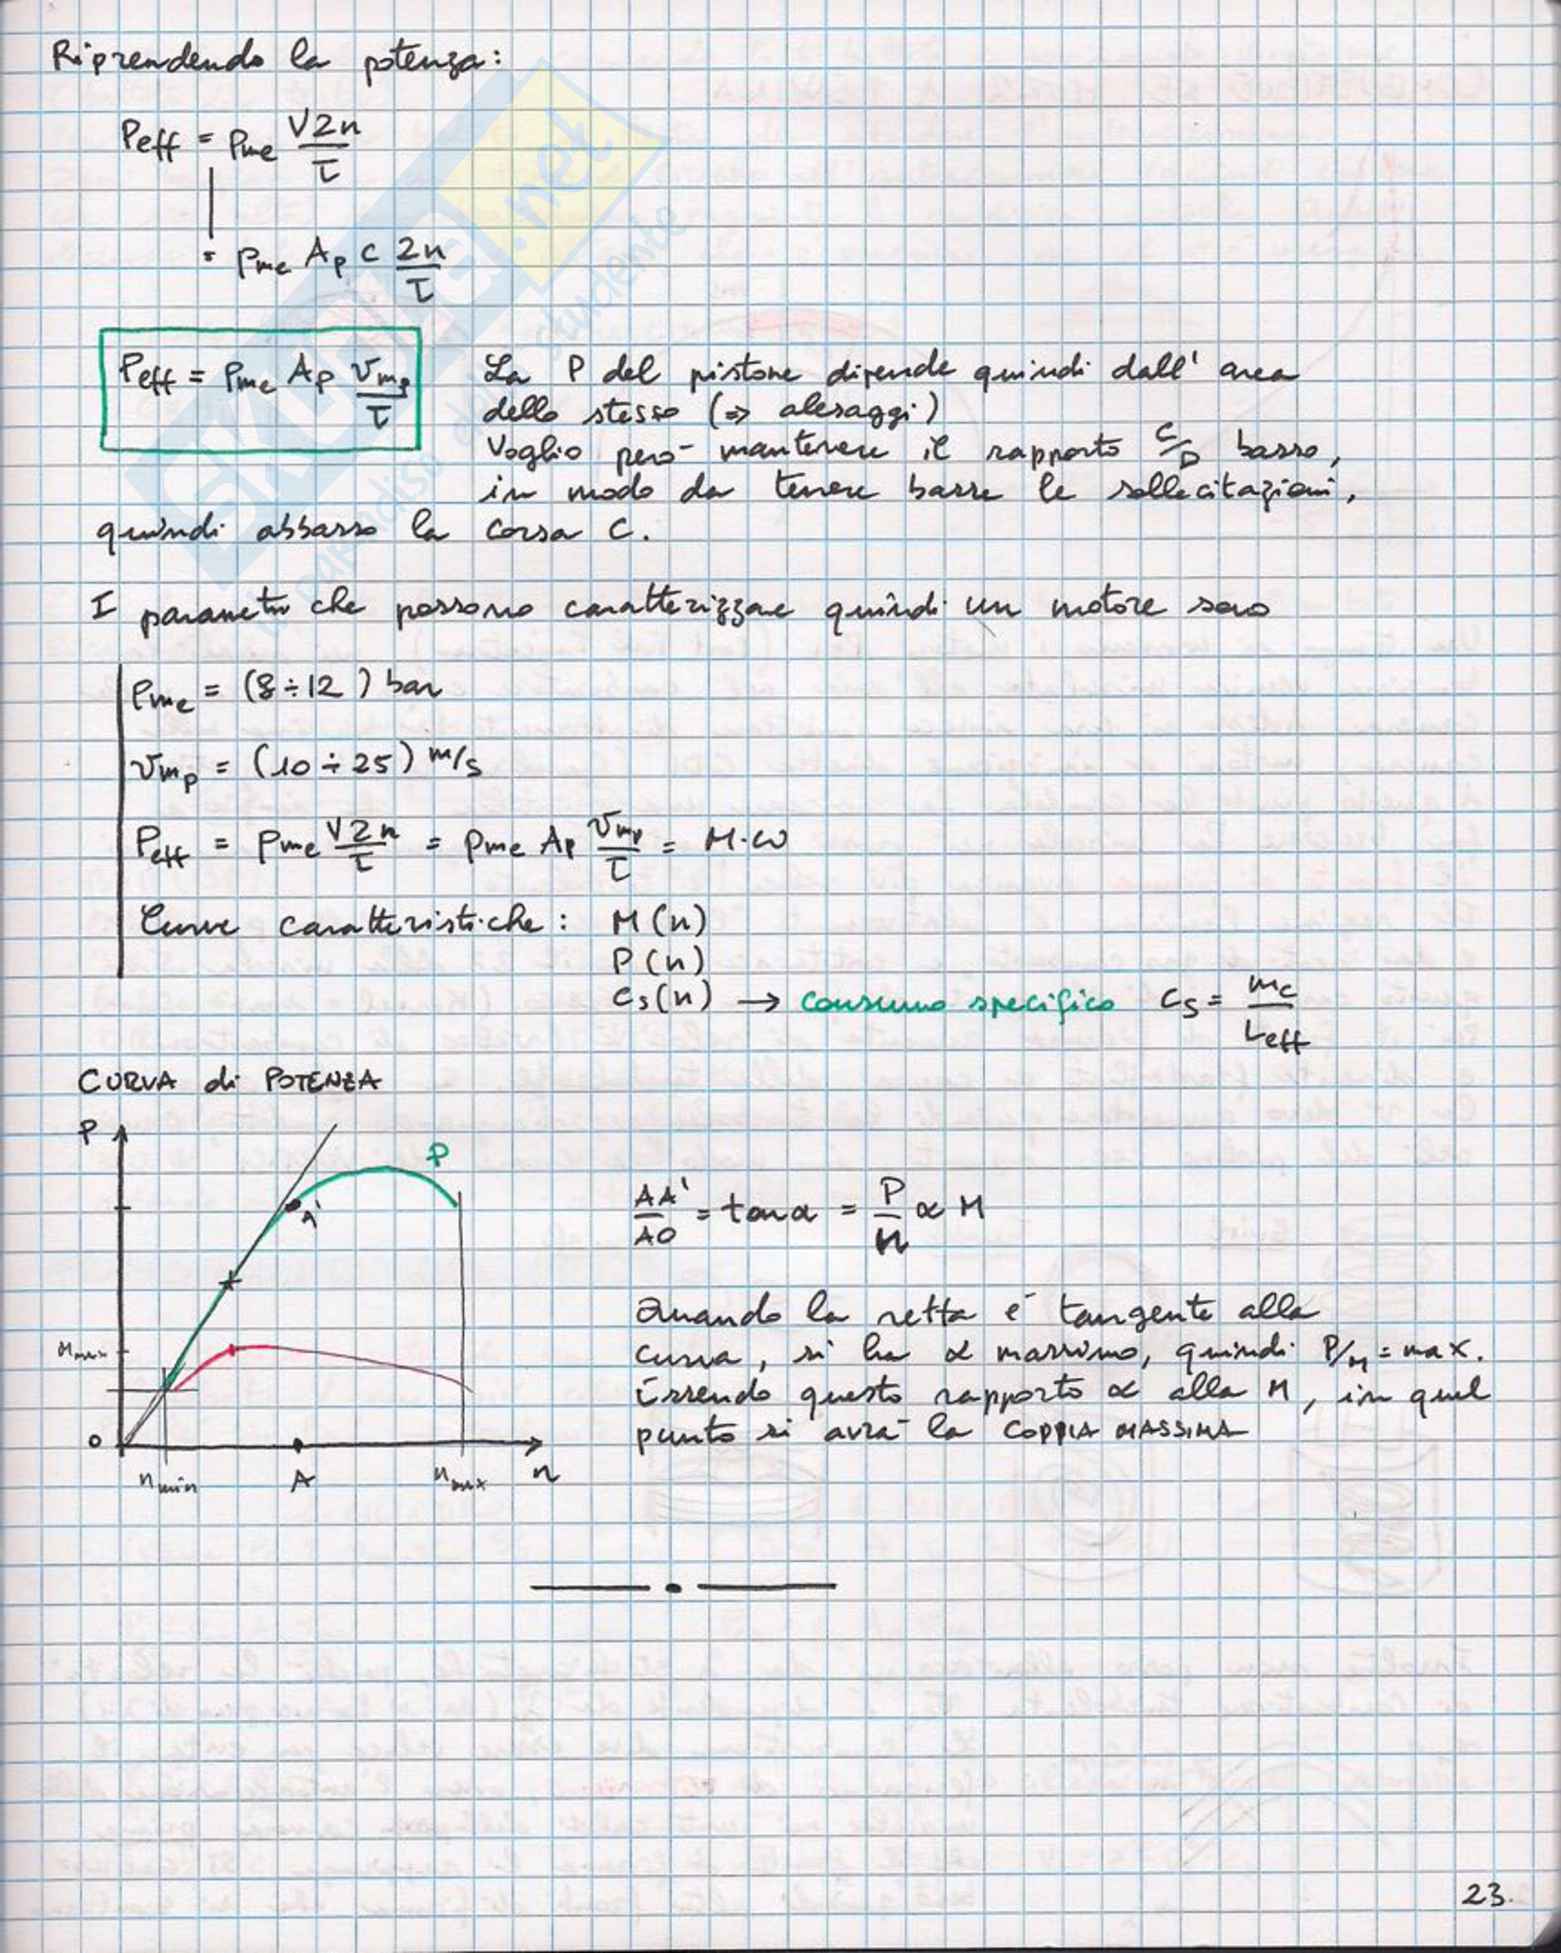 Riprendendo la potenza:
Peff = pme V2n/τ
= pme Ap c 2n/τ
Peff = pme Ap vmp/τ
La P del pistone dipende quindi dall' area
dello stesso (=> alesaggi)
Voglio però mantenere il rapporto C/D basso,
in modo da tenere basse le sollecitazioni,
quindi abbasso la corsa C.
I parametri che possono caratterizzare quindi un motore sono
pme = (8÷12) bar
vmp = (10÷25) m/s
Peff = pme V2n/τ = pme Ap vmp/τ = M·ω
Curve caratteristiche: M(n)
P(n)
cs(n) → consumo specifico cs = mc/Leff
CURVA di POTENZA
P
P
A'
AA'/AO = tan α = P/n ∝ M
Quando la retta è tangente alla
curva, si ha α massimo, quindi P/n = max.
Essendo questo rapporto ∝ alla M, in quel
punto si avrà la COPPIA MASSIMA
Mmax
O
nmin A nmax n
23.
SKUOLA.net
paradiso dello studente